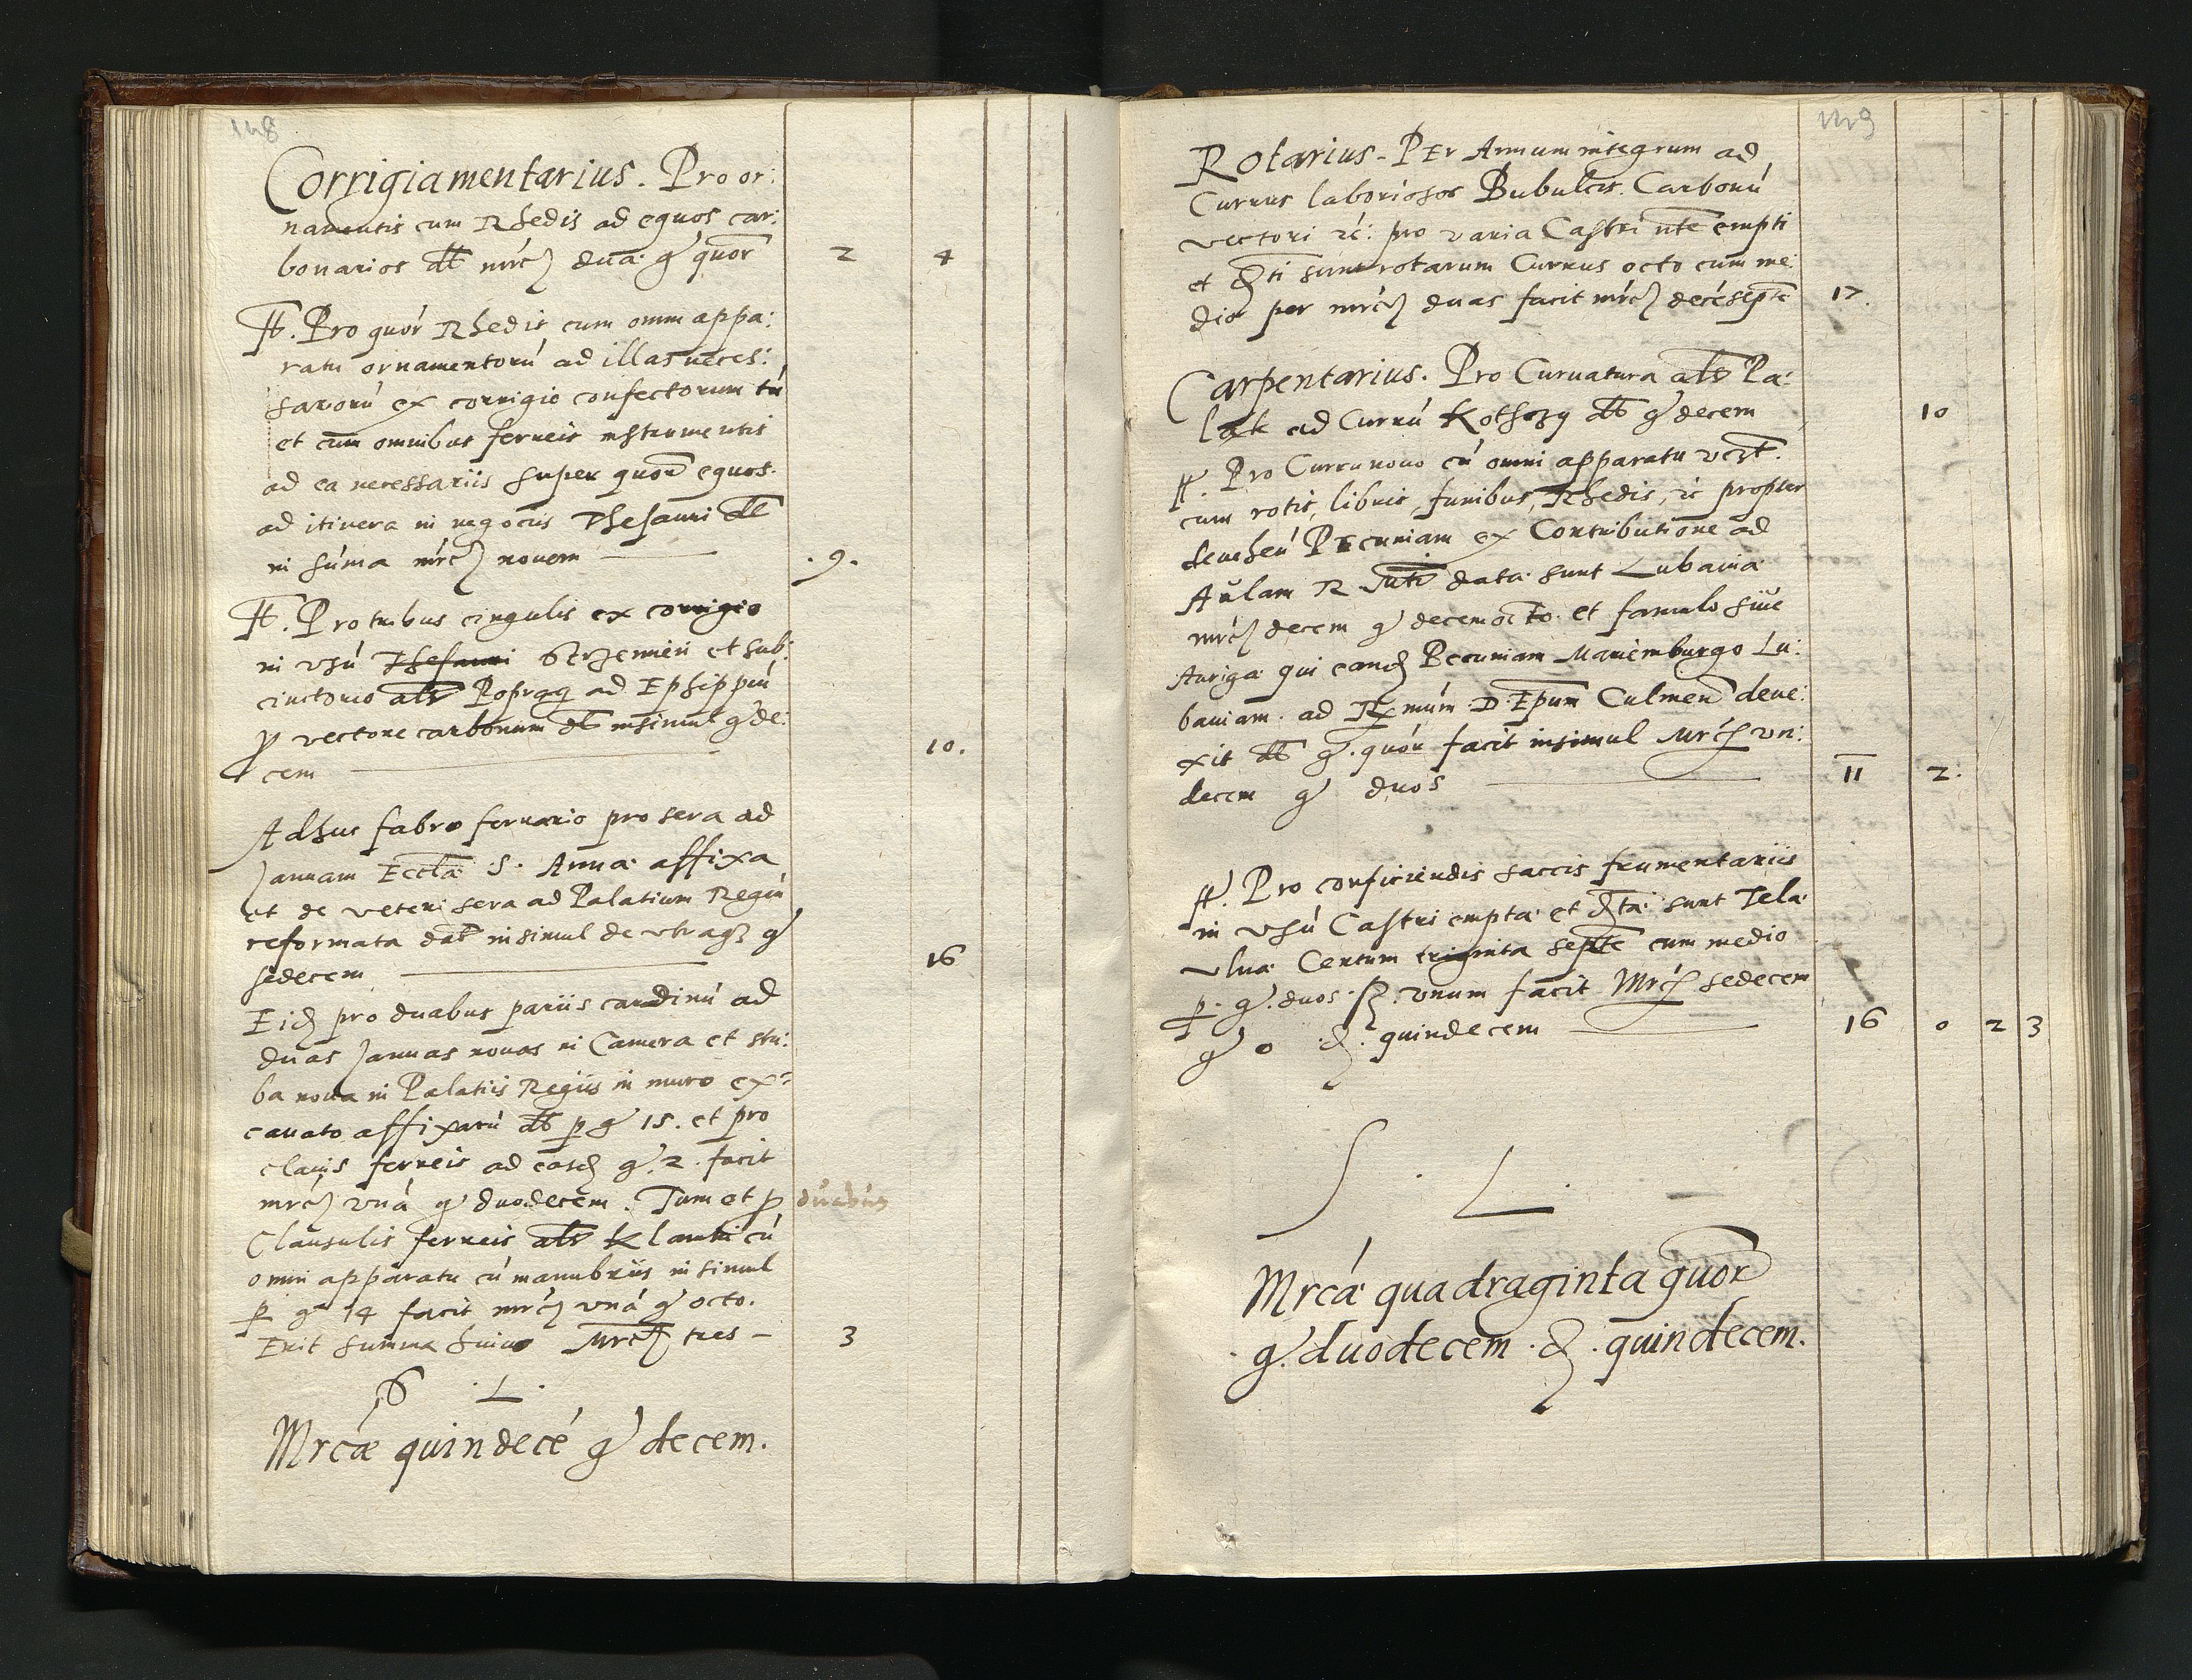 148
Corrigiamentarius. Pro or:
namentis cum Rhedis ad equos car:
bonarios dt mrcȝ duā g quor̄ 2 4
It. Pro quór Rhedis cum omni appa:
ratu ornamentorú ad illas neces:
sariorú ex corrigio confectorum tú
et cum omnibus ferreis instrumentis
ad ea necessariis super quor̄ equos
ad itinera in negociis Thesauri dt
in súma mrcȝ novem .9.
It. Pro tribus cingulis ex corrigio
in vsú Thesauri Strzemien et sub:
cinctorio als Popręgi ad Ephippiú
p vectore carbonum dt insimul g de:
cem 10.
Adhuc fabro ferrario pro sera ad
Januam Eccła S. Anna affixa
et de veteri sera ad Palatium Regiú
reformata dat insimul de vtraqȝ g
sedecem 16
Eidȝ pro duabus pariis cardinú ad
duas Januas nouas in Camera et stu:
ba noua in Palatiis Regiis in muro ex:
cauato affixarú dt p g 15. et pro
clauis ferreis ad easdȝ g. 2. facit
mrcȝ vná g duodecem. Tum et p duabus
Clausulis ferreis als Klamki cú
omni apparatu cú manubriis insimul
p g 14 facit mrcȝ vná g octo.
Erit summa huius Mrcȝ tres 3
S . L .
Mrcæ quindecé g decem.
149
Rotarius - PEr Annum integrum ad
Currus laboriosos Bubulcis. Carbonú
vectori ec: pro varia Castri nte empti
et dti sunt rotarum Currus octo cum me:
dio per mrcȝ duas facit mrcȝ decéseptē 17.
Carpentarius. Pro Curuatura als Pa:
ląk ad Currú Kothczy dt g decem 10
It. Pro Curru nouo cú omni apparatu vczt.
cum rotis, libris, funibus, Rhedis, ec propter
deuehen̄ Pecuniam ex Contributione ad
Aulam R Mtis data sunt Lubauia
mrcȝ decem g decemocto. et famulo siue
Auriga qui eandȝ Pecuniam Mariemburgo Lu:
bauiam ad Rx múm D. Epum Culmen̄ deue:
xit dt g. quór facit insimul Mrcȝ vn:
decem g duos 11 2.
It. Pro conficiendis saccis frumentariis
in vsú Castri empta et dta sunt Tela
vlna Centum triginta septē cum medio
p. g. duos . ß. vnum facit Mrcȝ sedecem
g o .d. quindecem 16 0 2 3
S . L .
Mrcæ quadraginta quor̄
. g. duodecem .d. quindecem.